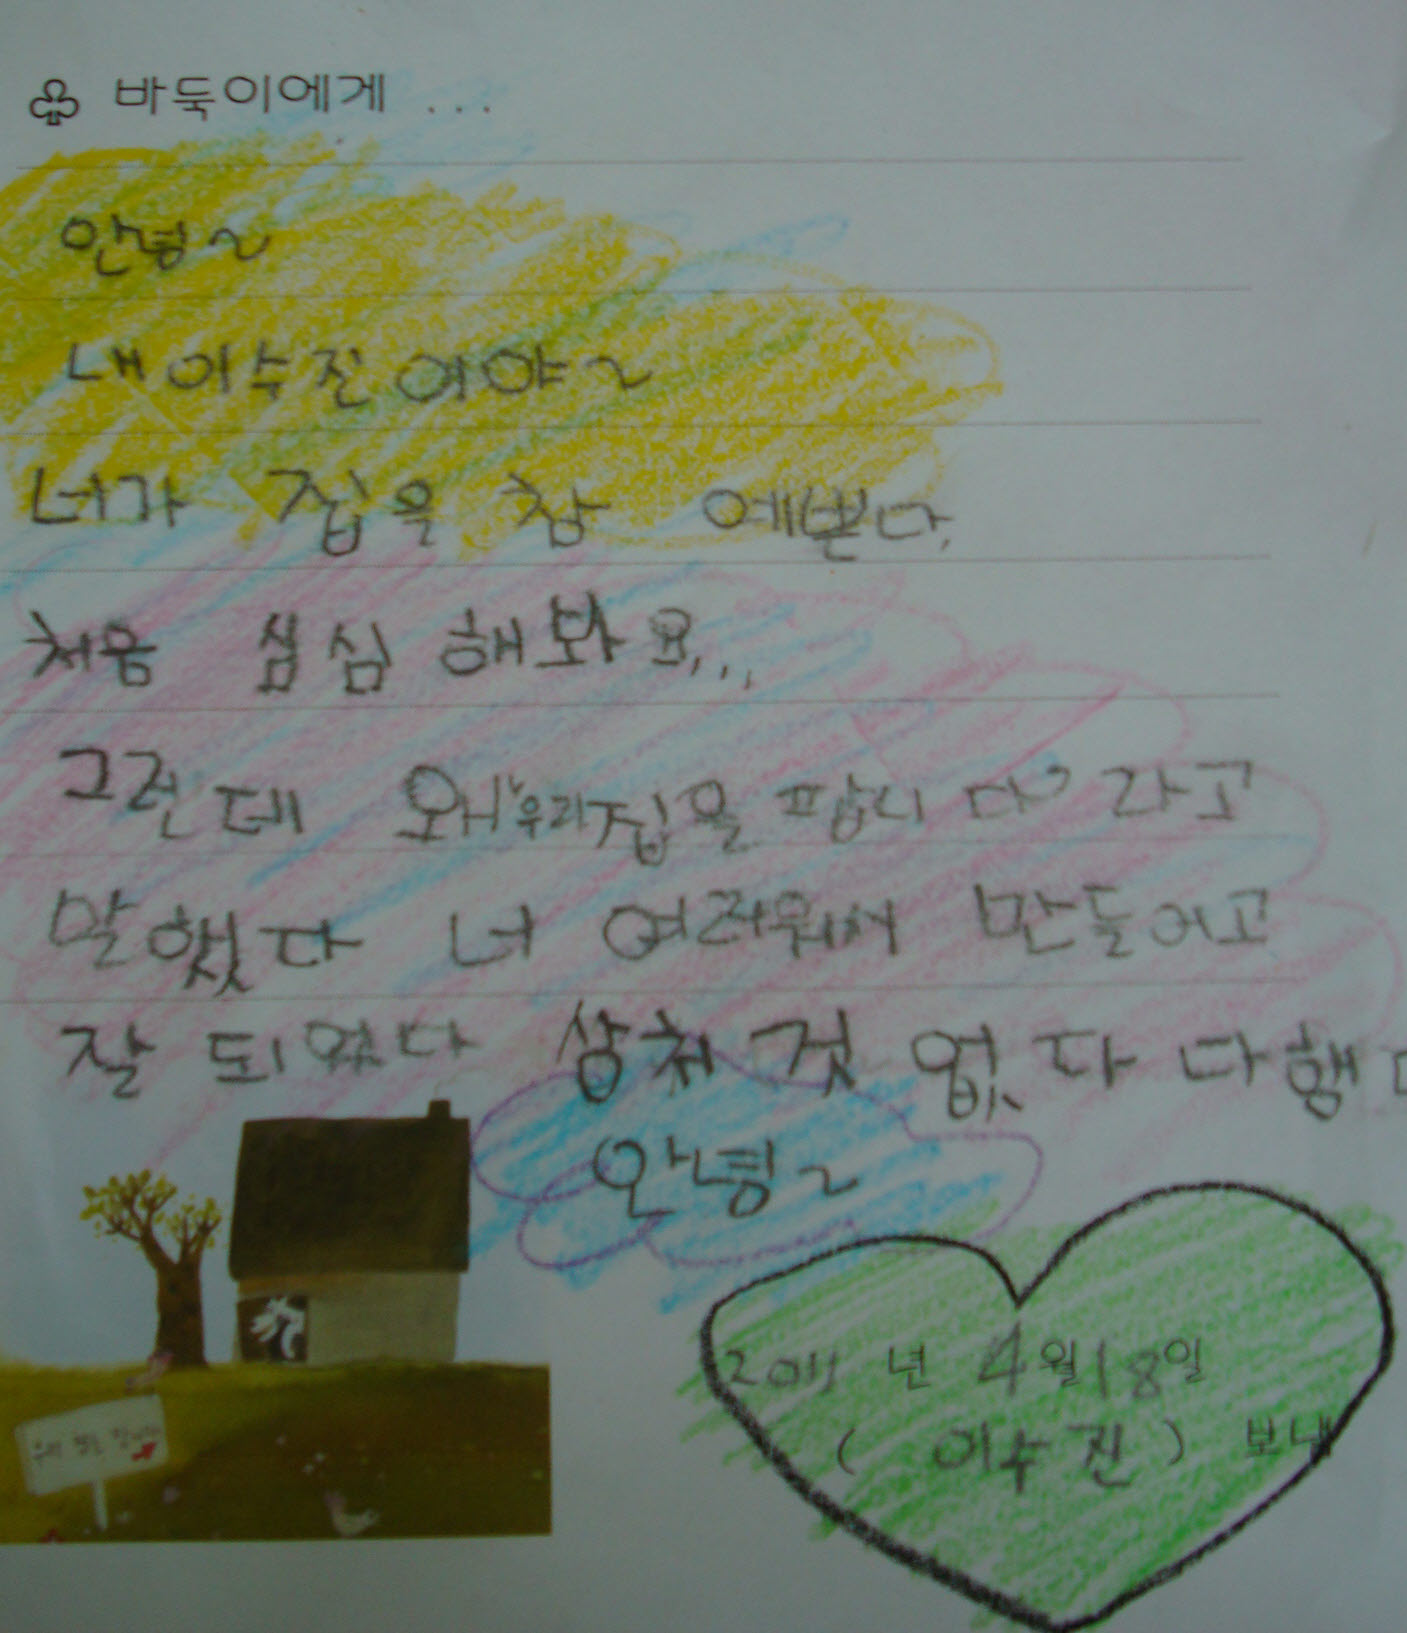 ♧ 바둑이에게 ...
안녕~
내 이수진이야~
너가 집을 참 예쁜다.
처음 심심해봐요...
그런데 왜 "우리집을 팝니다" 라고
말했다 너 어려워서 만들어고
잘 되었다 상처 것 없다 다행
안녕~
2011 년 4월 18일
( 이수진 ) 보냄